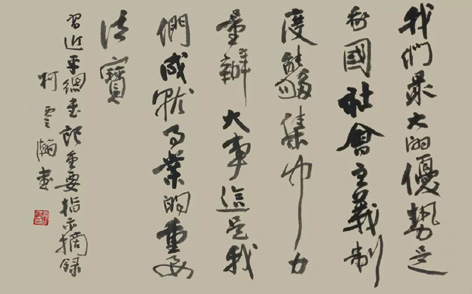 我們最大的優勢是
我國社會主義制
度能夠集中力
量辦大事這是我
們成就事業的重要
法寶
習近平總書記重要指示摘錄
柯雲瀚書